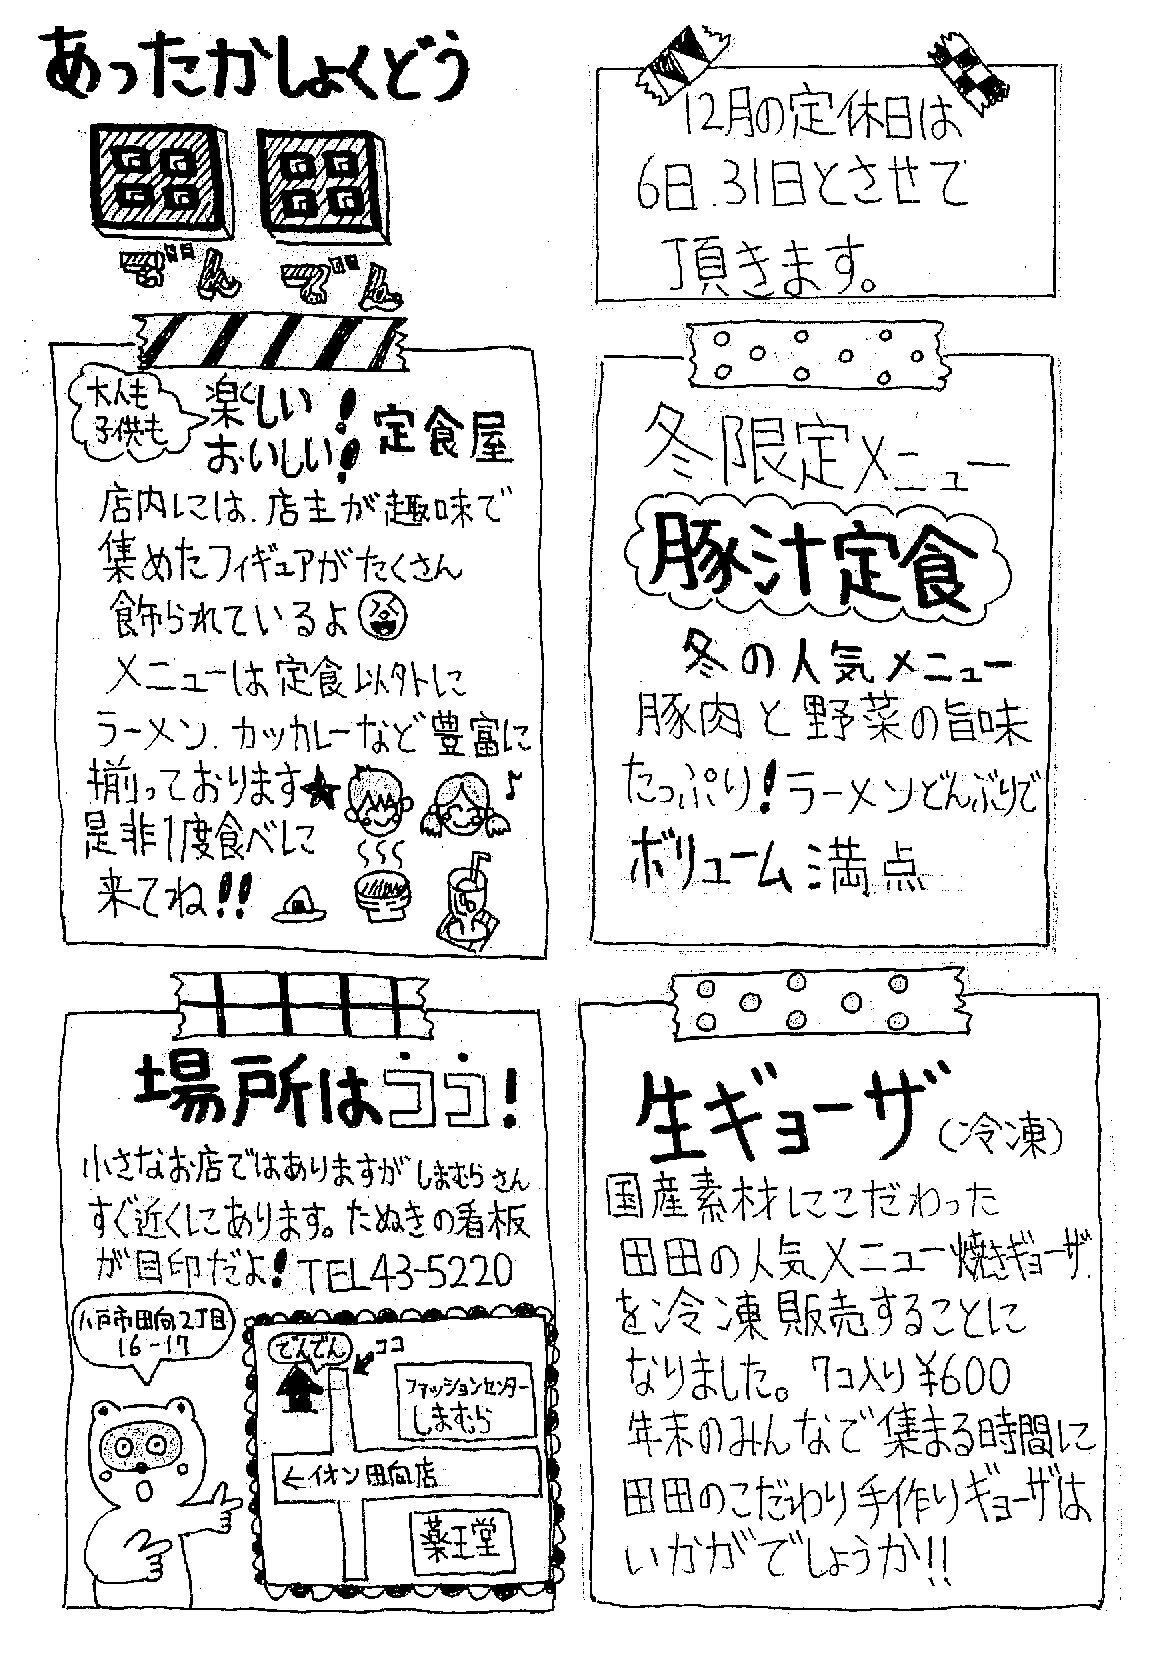 あったかしょくどう
田田
でんでん
12月の定休日は
6日.31日とさせて
頂きます。
大人も
子供も
楽しい!
おいしい!
定食屋
店内には、店主が趣味で
集めたフィギュアがたくさん
飾られているよ
メニューは定食以外に
ラーメン、カツカレーなど豊富に
揃っております★
是非1度食べに
来てね!!
冬限定メニュー
豚汁定食
冬の人気メニュー
豚肉と野菜の旨味
たっぷり!ラーメンどんぶりで
ボリューム満点
場所はココ!
小さなお店ではありますがしまむらさん
すぐ近くにあります。たぬきの看板
が目印だよ!TEL43-5220
八戸市田向2丁目
16-17
でんでん
ココ
ファッションセンター
しまむら
←イオン田向店
薬王堂
生ギョーザ(冷凍)
国産素材にこだわった
田田の人気メニュー焼きギョーザ
を冷凍販売することに
なりました。7コ入り¥600
年末のみんなで集まる時間に
田田のこだわり手作りギョーザは
いかがでしょうか!!